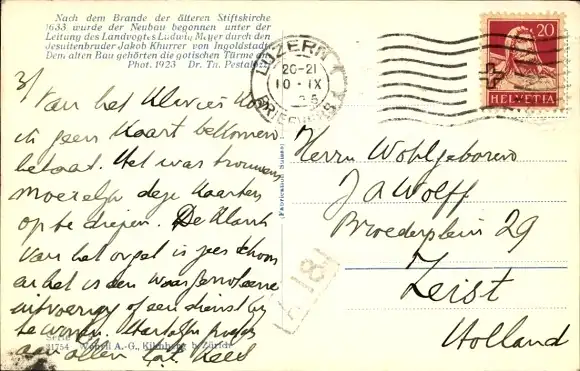 Nach dem Brande der älteren Stiftskirche
1633 wurde der Neubau begonnen unter der
Leitung des Landvogtes Ludwig Meyer durch den
Jesuitenbruder Jakob Khurrer von Ingolstadt.
Dem alten Bau gehörten die gotischen Türme
Phot. 1923 Dr. Th. Pestal
LUZERN 1
20-21
10·IX
BRIEFVERS
20
HELVETIA
3/
Van het Klavier
ik geen kaart bekomen
betaat. Het was trouwens
moeielijk deze kaarten
op te diepen. De klank
van het orgel is zeer schoon
en het is een
uitvoering of een dienst bij
te wonen. Hartelijke
aan allen
Herrn Wohlgeboren
J A Wolff
Broederplein 29
Zeist
Holland
181
31754 Wehrli A.-G., Kilchberg b. Zürich